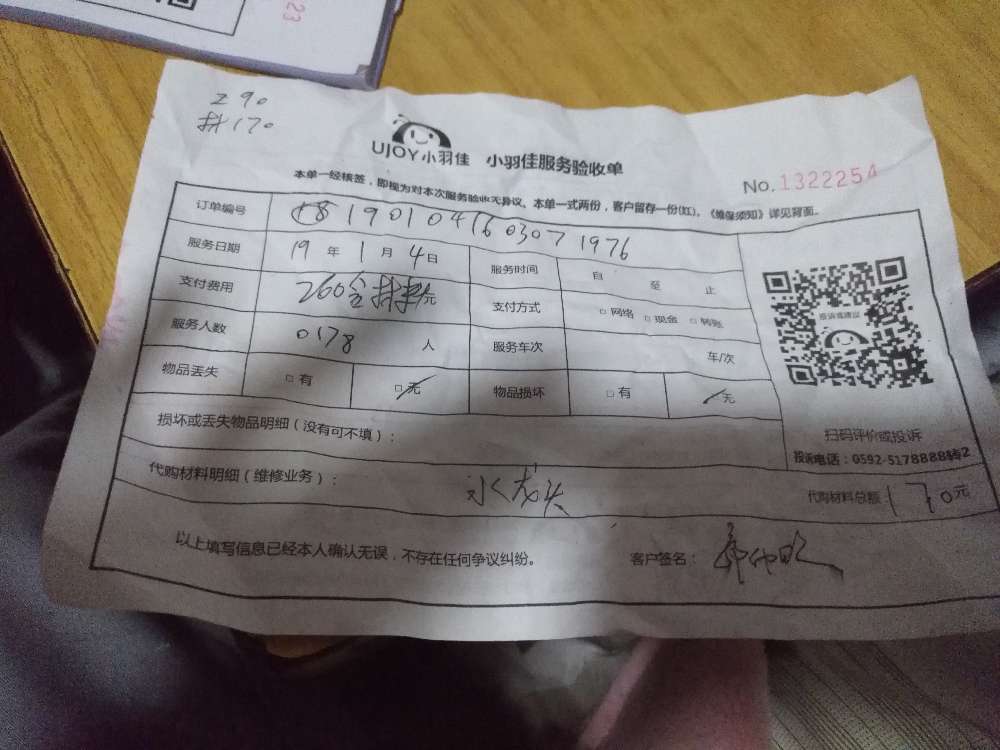 23
工90
材170
UJOY小羽佳 小羽佳服务验收单
No.1322254
本单一经核签，即视为对本次服务验收无异议、本单一式两份，客户留存一份(红)，《维保须知》详见背面。
订单编号 190104160307 1976
服务日期 19 年 1 月 4 日 服务时间 自 至 止
支付费用 260含材料元 支付方式 □ 网络 □ 现金 □ 转账
服务人数 0178 人 服务车次 车/次
物品丢失 □ 有 □ 无 物品损坏 □ 有 无
投诉或建议
扫码评价或投诉
投诉电话：0592-5178888转2
损坏或丢失物品明细（没有可不填）：
代购材料明细（维修业务）： 水龙头 代购材料总额 170元
以上填写信息已经本人确认无误，不存在任何争议纠纷。 客户签名：